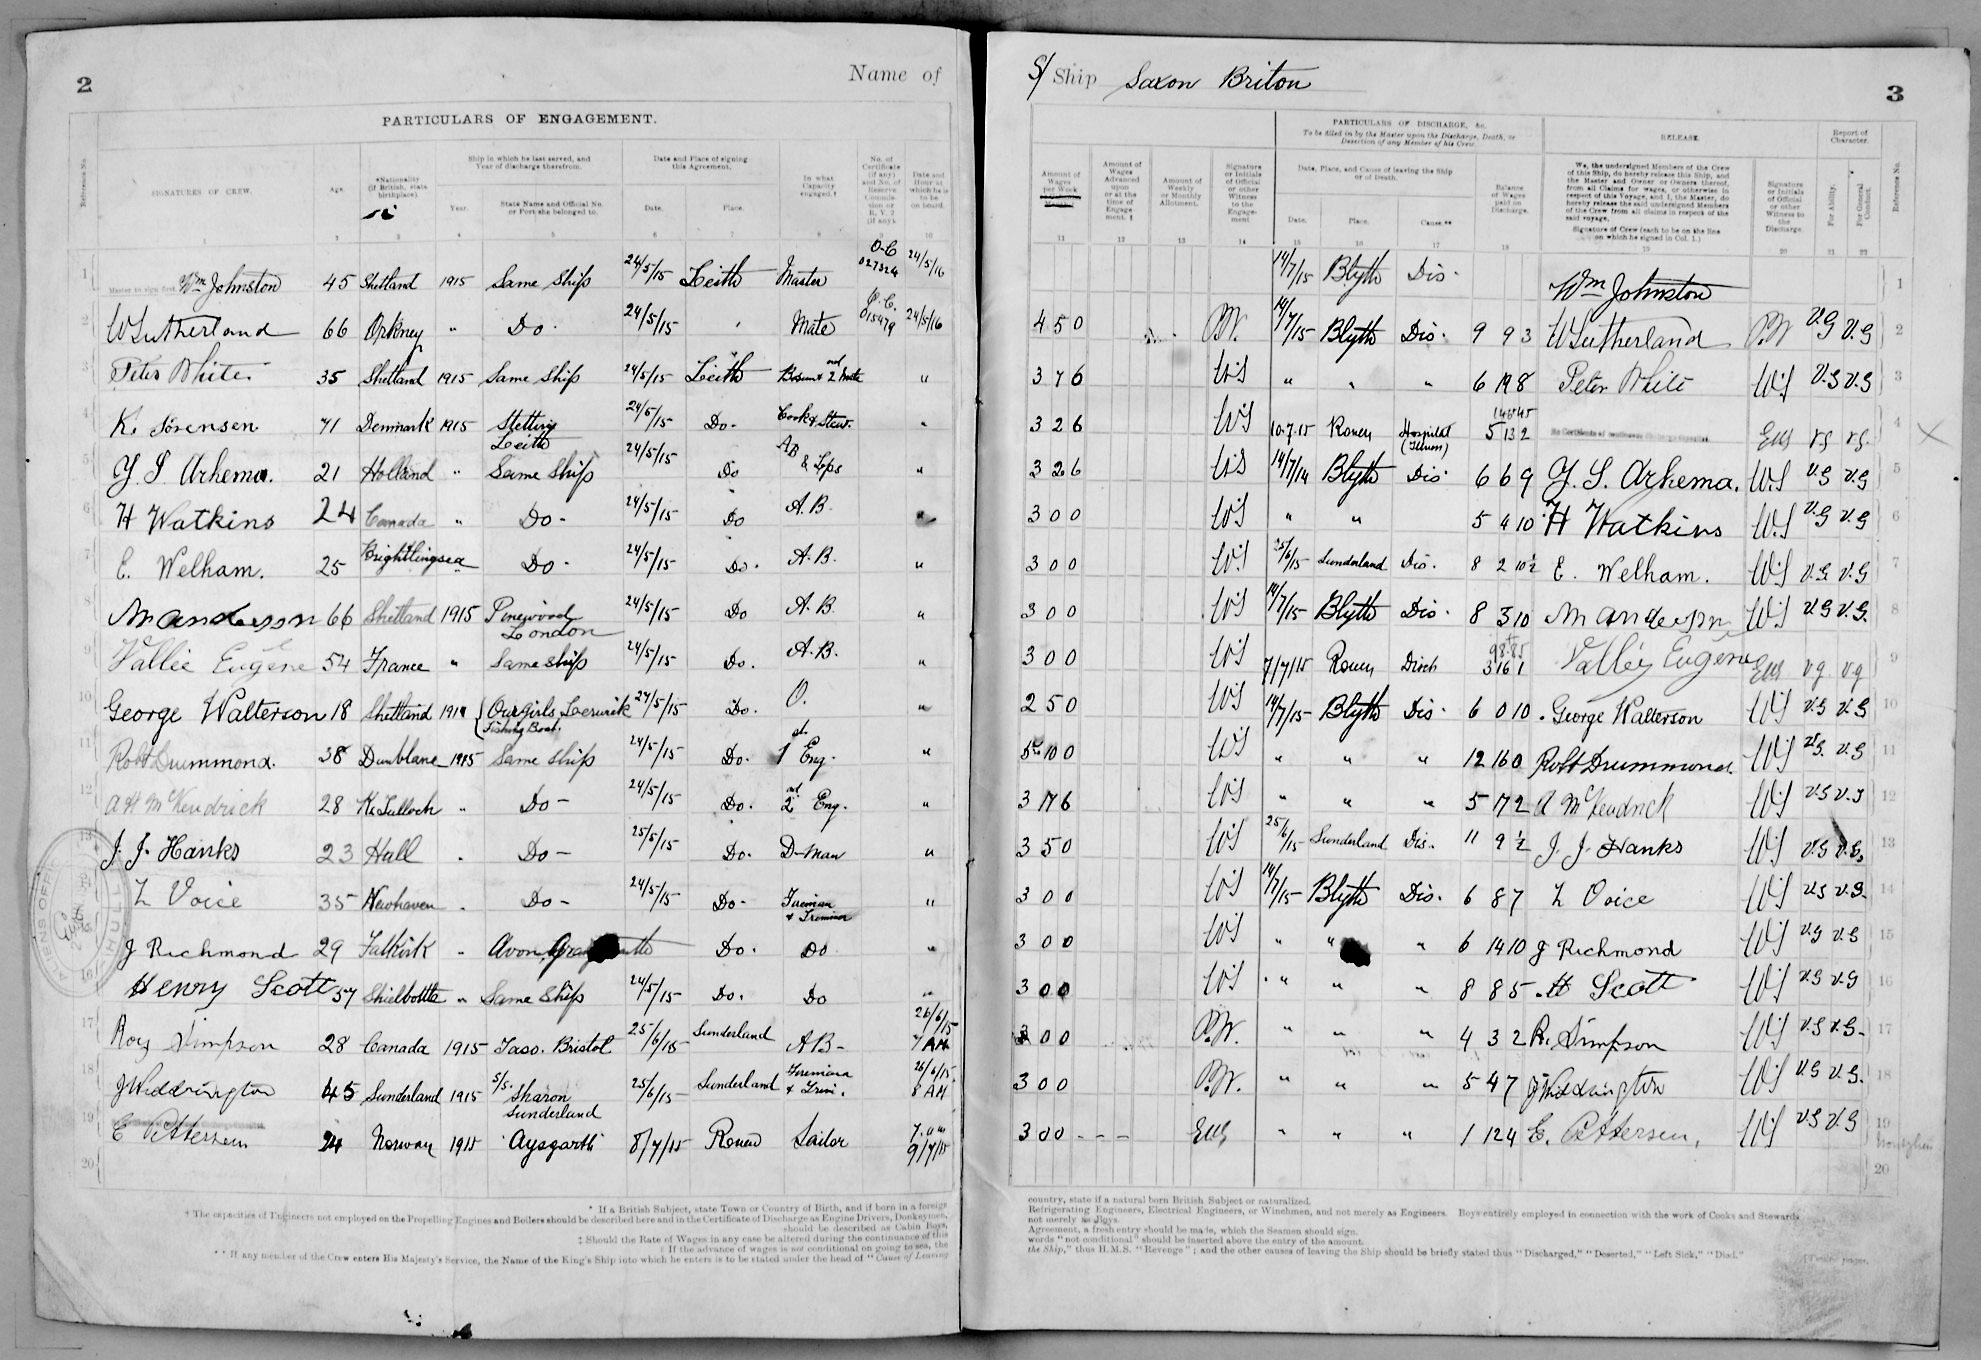 2
Name of
S/ Ship Saxon Briton
3
PARTICULARS OF ENGAGEMENT.
Reference No.
SIGNATURES OF CREW.
Age.
*Nationality (if British, state birthplace).
Ship in which he last served, and Year of discharge therefrom.
Year.
State Name and Official No. or Port she belonged to.
Date and Place of signing this Agreement.
Date.
Place.
In what Capacity engaged.†
No. of Certificate (if any) and No. of Reserve Commission or R. V. 2 (if any).
Date and Hour at which he is to be on board.
Amount of Wages per Week
Amount of Wages Advanced upon or at the time of Engagement. ‡
Amount of Weekly or Monthly Allotment.
Signature or Initials of Official or other Witness to the Engagement
PARTICULARS OF DISCHARGE, &c.
To be filled in by the Master upon the Discharge, Death, or Desertion of any Member of his Crew.
Date, Place, and Cause of leaving the Ship or of Death.
Date.
Place.
Cause.**
Balance of Wages paid on Discharge.
RELEASE.
We, the undersigned Members of the Crew of this Ship, do hereby release this Ship, and the Master and Owner or Owners thereof, from all Claims for wages, or otherwise in respect of this Voyage, and I, the Master, do hereby release the said undersigned Members of the Crew from all claims in respect of the said voyage.
Signature of Crew (each to be on the line on which he signed in Col. 1.)
Signature or Initials of Official or other Witness to the Discharge.
Report of Character.
For Ability.
For General Conduct.
Reference No.
1 Master to sign first. Wm Johnston 45 Shetland 1915 Same Ship 24/5/15 Leith Master O-C 027324 24/5/16 14/7/15 Blyth Dis. Wm Johnston 1
2 W Sutherland 66 Orkney " Do. 24/5/15 " Mate O.C. 015479 24/5/16 4 5 0 P.W. 14/7/15 Blyth Dis. 9 9 3 W Sutherland P.W V.G V.G 2
3 Peter White 35 Shetland 1915 Same Ship 24/5/15 Leith Bosun & 2nd Mate " 3 7 6 WS " " " 6 19 8 Peter White WS V.G V.G 3
4 K. Sörensen 71 Denmark 1915 Stettin Leith 24/5/15 Do. Cook & Stew. " 3 2 6 WS 10.7.15 Rouen Hospital (Illness) 5 13 2 V.G V.G. 4
5 Y. S. Arhema. 21 Holland " Same Ship 24/5/15 Do AB & Lps " 3 2 6 WS 14/7/14 Blyth Dis. 6 6 9 Y. S. Arhema. W.S V.G V.G 5
6 H Watkins 24 Canada " Do - 24/5/15 Do A.B. " 3 0 0 WS " " 5 4 10 H Watkins W.S V.G V.G 6
7 E. Welham. 25 Brightlingsea Do - 24/5/15 Do. A.B. " 3 0 0 WS 25/6/15 Sunderland Dis. 8 2 10½ E. Welham. WS V.G V.G 7
8 M anderson 66 Shetland 1915 Pinewood London 24/5/15 Do A.B. " 3 0 0 WS 14/7/15 Blyth Dis. 8 3 10 M anderson WS V.G V.G. 8
9 Vallée Eugène 54 France " Same ship 24/5/15 Do. A.B. " 3 0 0 WS 7/7/15 Rouen Disch 3 16 1 Vallée Eugène v.g v.g 9
10 George Walterson 18 Shetland 1914 Our Girls Lerwick Fishing Boat. 24/5/15 Do. O. " 2 5 0 WS 14/7/15 Blyth Dis. 6 0 10 George Walterson WS V.G V.G 10
11 Robt Drummond. 38 Dunblane 1915 Same ship 24/5/15 Do. 1st Eng. " WS " " " 12 16 0 Robt Drummond. WS V.G. V.G 11
12 A H McKendrick 28 Do - 24/5/15 Do. 2nd Eng. " 3 17 6 WS " " " 5 17 2 A McKendrick WS V.G V.G 12
13 J. J. Hanks 23 Hull " Do - 25/5/15 Do. D-Man " 3 5 0 WS 25/6/15 Sunderland Dis. 11 9½ J. J. Hanks WS V.G V.G. 13
14 L Voice 35 Newhaven " Do - 24/5/15 Do - Fireman & Trimmer " 3 0 0 WS 14/7/15 Blyth Dis. 6 8 7 L Voice WS V.G V.G. 14
15 J Richmond 29 Falkirk " Avon, Do. Do " 3 0 0 WS " " " 6 14 10 J Richmond WS V.G V.G 15
16 Henry Scott 57 Shielbottle " Same Ship 24/5/15 Do. Do " 3 0 0 WS " " " 8 8 5 H Scott WS V.G V.G 16
17 Roy Simpson 28 Canada 1915 Taso. Bristol 25/6/15 Sunderland AB - 26/6/15 7 AM 3 0 0 P.W. " " " 4 3 2 R. Simpson WS V.G V.G. 17
18 J Widdrington 45 Sunderland 1915 S/S. Sharon Sunderland 25/6/15 Sunderland Fireman & Trim. 26/6/15 8 AM 3 0 0 P.W. " " " 5 4 7 J Widdrington WS V.G V.G. 18
19 E Pettersen 24 Norway 1915 Aysgarth 8/7/15 Rouen Sailor 7 am 9/7/15 3 0 0 - - - " " " 1 12 4 E. Pettersen, WS V.G V.G 19
20
20
* If a British Subject, state Town or Country of Birth, and if born in a foreign
† The capacities of Engineers not employed on the Propelling Engines and Boilers should be described here and in the Certificate of Discharge as Engine Drivers, Donkeymen,
should be described as Cabin Boys,
‡ Should the Rate of Wages in any case be altered during the continuance of this
If the advance of wages is not conditional on going to sea, the
** If any member of the Crew enters His Majesty's Service, the Name of the King's Ship into which he enters is to be stated under the head of "Cause of Leaving
country, state if a natural born British Subject or naturalized.
Refrigerating Engineers, Electrical Engineers, or Winchmen, and not merely as Engineers. Boys entirely employed in connection with the work of Cooks and Stewards
not merely as Boys.
Agreement, a fresh entry should be made, which the Seamen should sign.
words "not conditional" should be inserted above the entry of the amount.
the Ship," thus H.M.S. "Revenge"; and the other causes of leaving the Ship should be briefly stated thus "Discharged," "Deserted," "Left Sick," "Died."